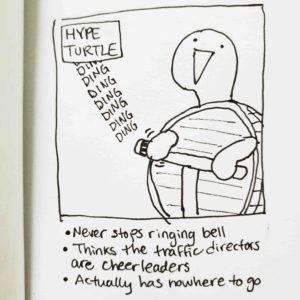 HYPE
TURTLE
DING
DING
DING
DING
DING
DING
DING
• Never stops ringing bell
• Thinks the traffic directors
are cheerleaders
• Actually has nowhere to go